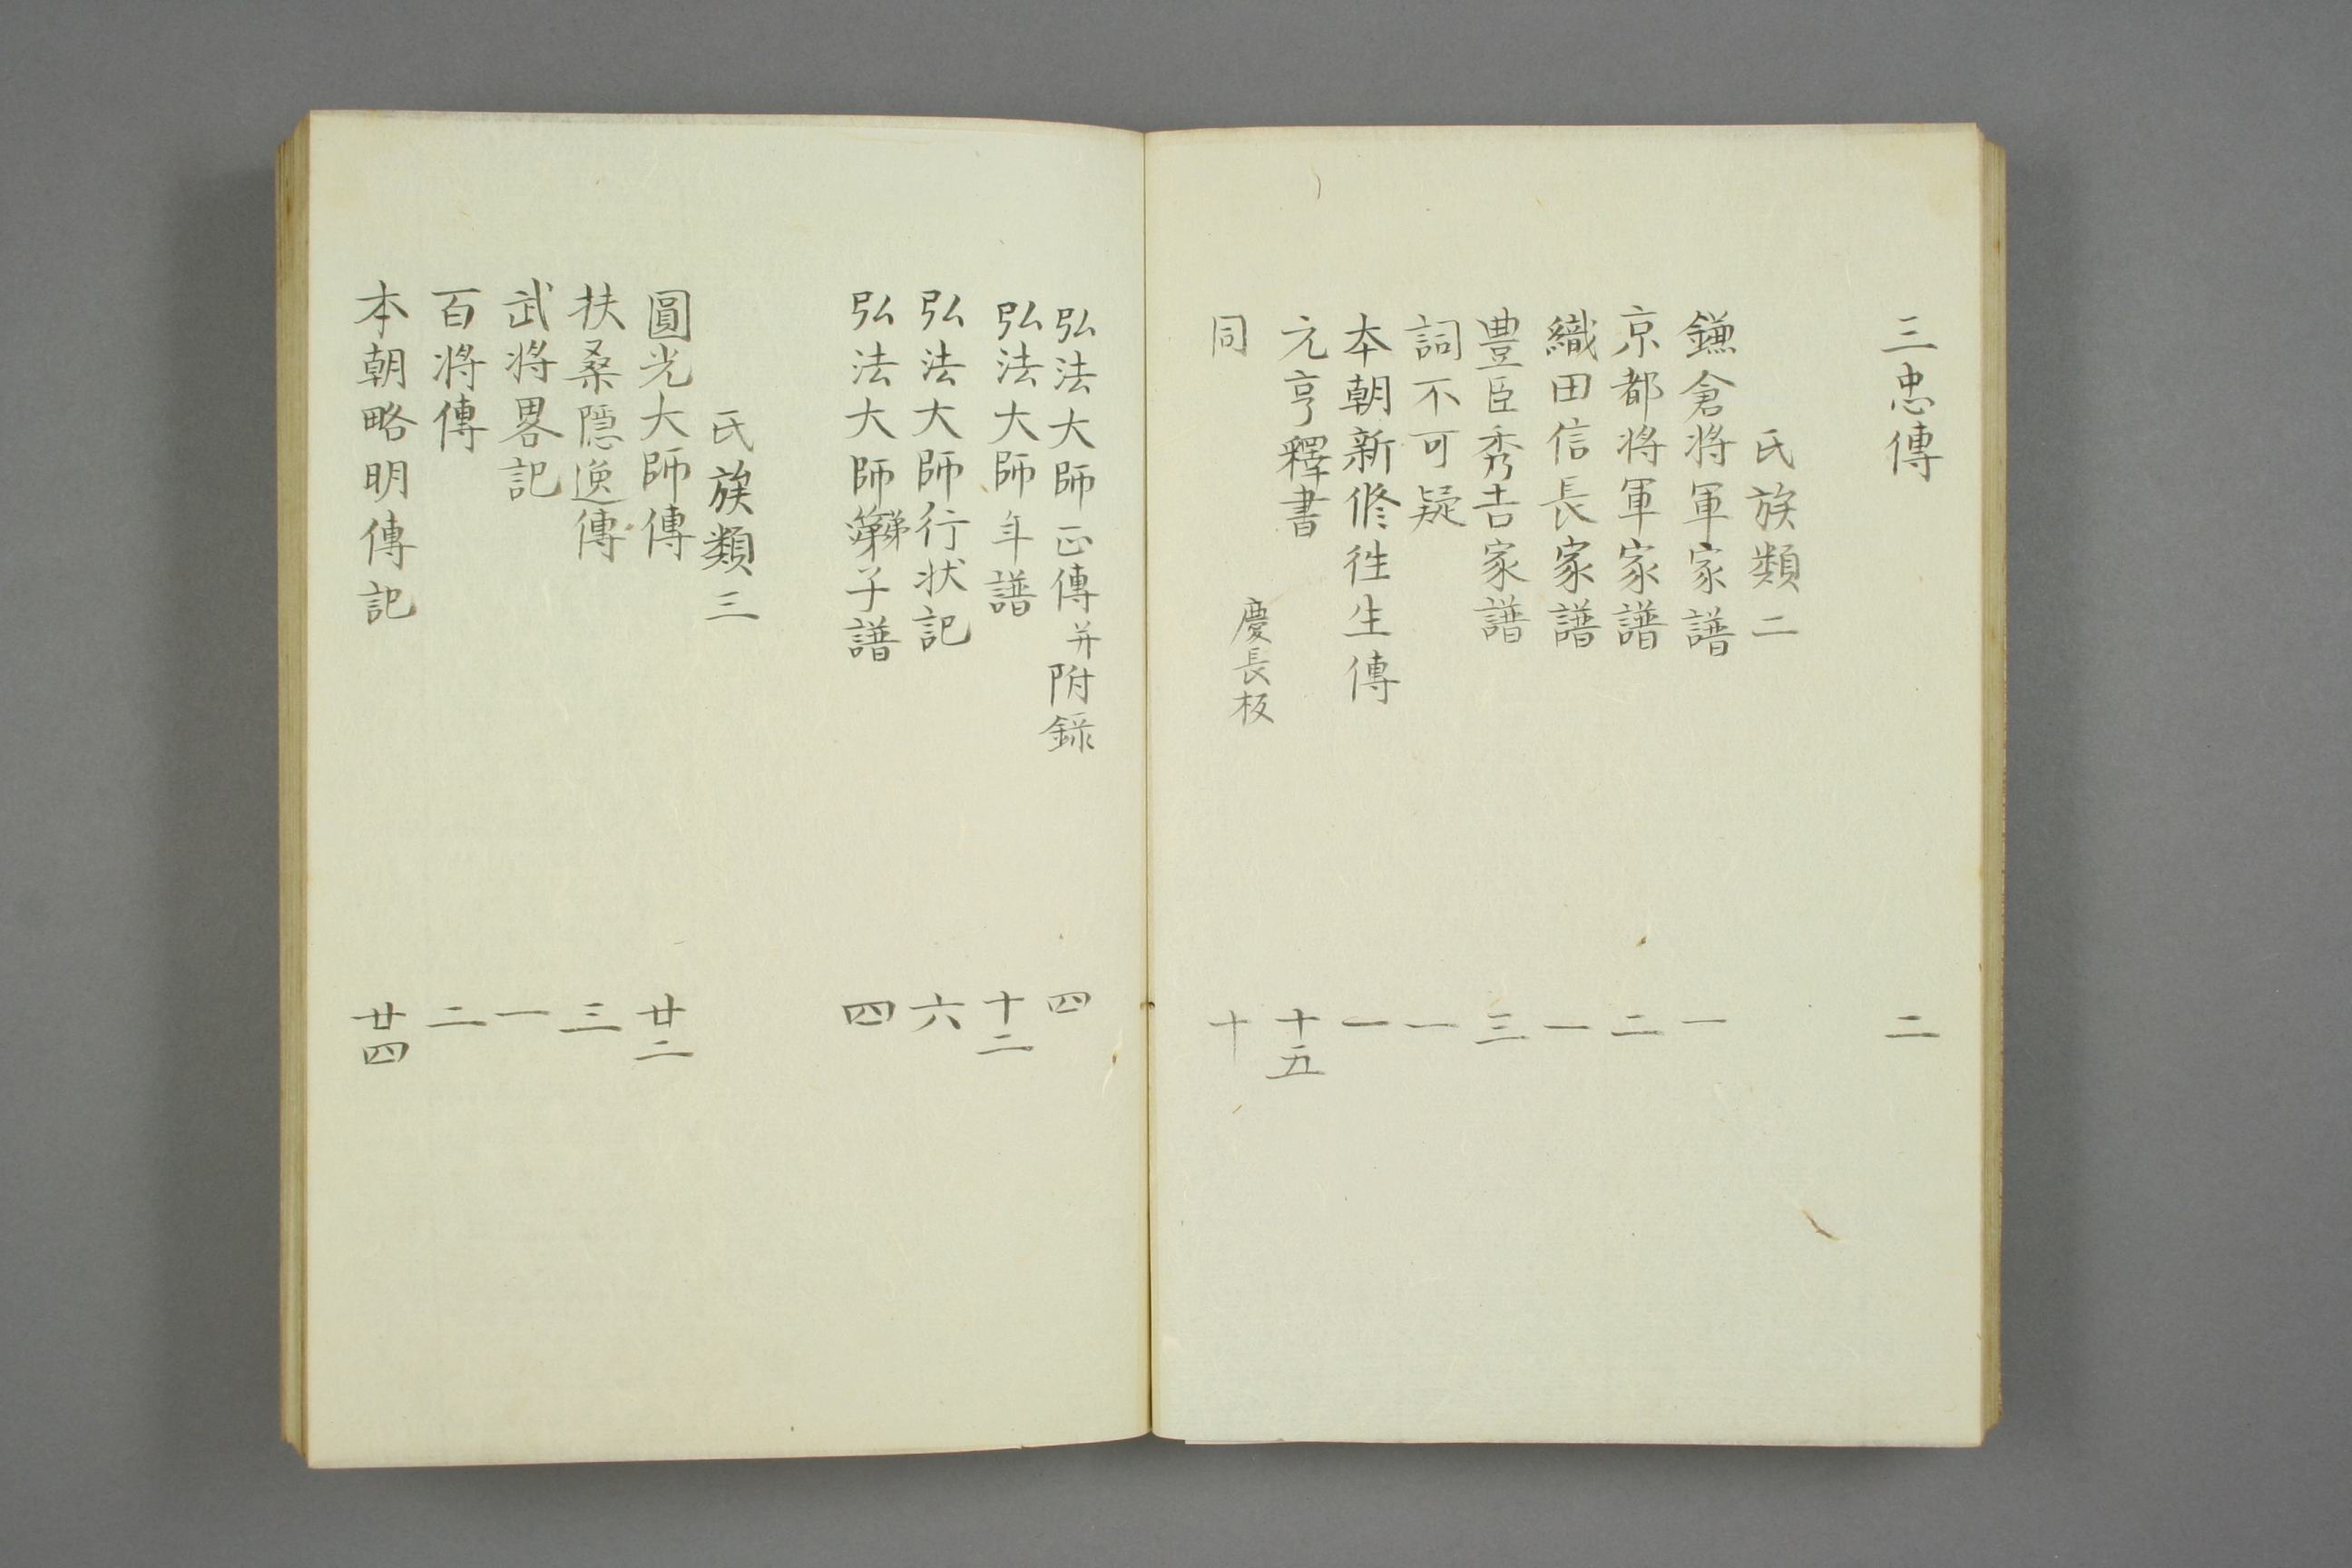 三忠傳 二
氏族類二
鎌倉将軍家譜 一
京都将軍家譜 二
織田信長家譜 一
豊臣秀吉家譜 三
詞不可疑 一
本朝新修徃生傳 一
元亨釋書 十五
同 慶長板 十
弘法大師正傳并附錄 四
弘法大師年譜 十二
弘法大師行状記 六
弘法大師弟子譜 四
氏族類三
圓光大師傳 廿二
扶桑隠逸傳 三
武将畧記 一
百将傳 二
本朝略明傳記 廿四